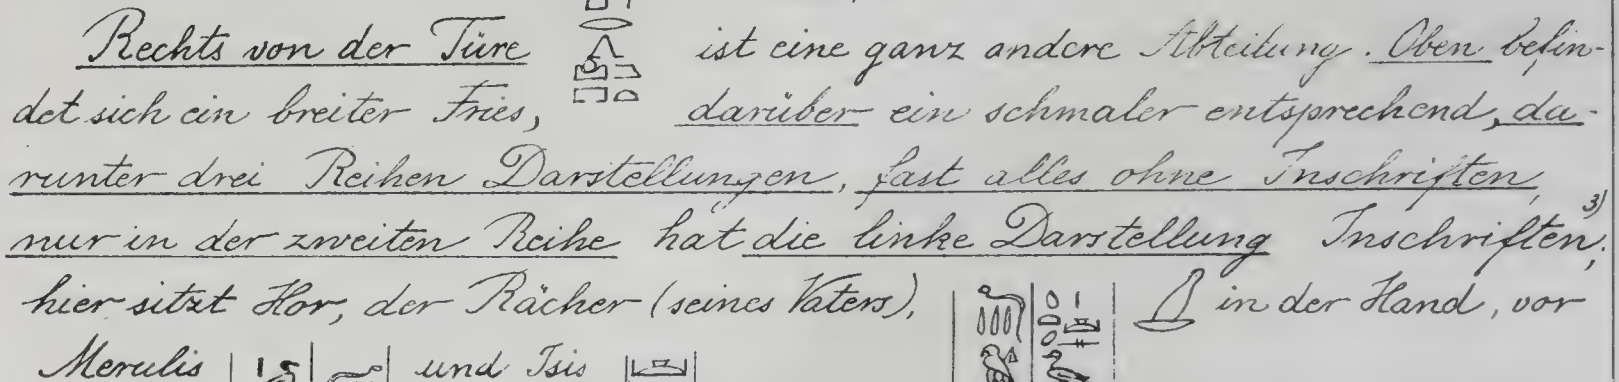 Rechts von der Türe ist eine ganz andere Abteilung. Oben befin-
det sich ein breiter Fries, darüber ein schmaler entsprechend, da-
runter drei Reihen Darstellungen, fast alles ohne Inschriften,
nur in der zweiten Reihe hat die linke Darstellung Inschriften; 3)
hier sitzt Hor, der Rächer (seines Vaters), in der Hand, vor
Merulis und Isis